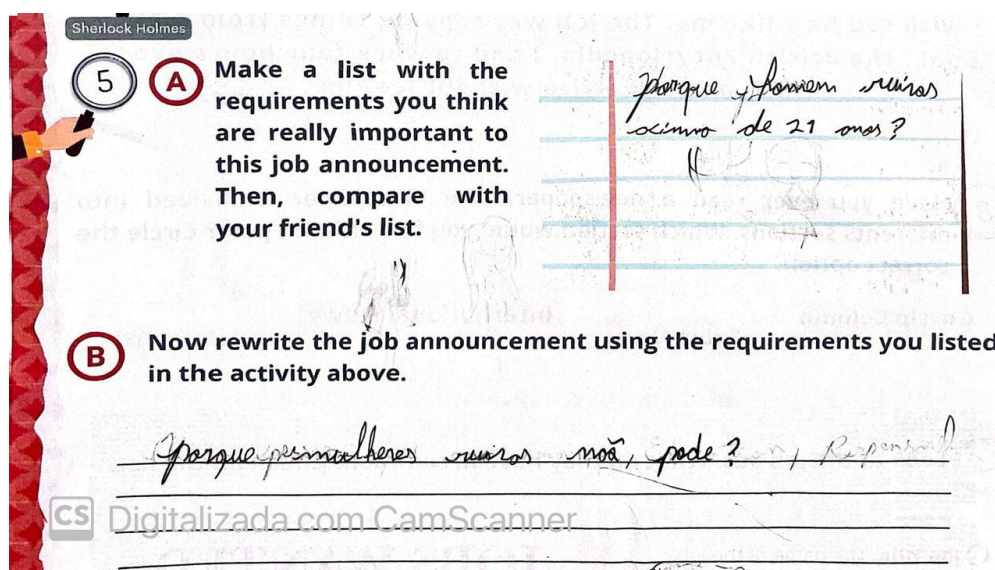 Sherlock Holmes
5 A Make a list with the
requirements you think
are really important to
this job announcement.
Then, compare with
your friend's list.
porque homem ruivos
acima de 21 anos?
B Now rewrite the job announcement using the requirements you listed
in the activity above.
porque mulheres ruivas não, pode?
CS Digitalizada com CamScanner